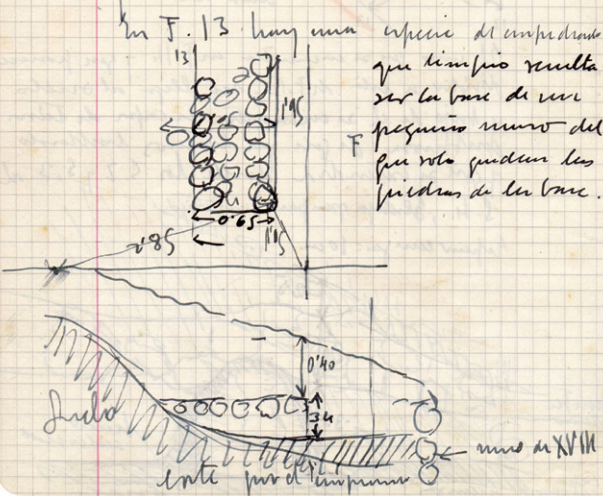 En F. 13 hay una especie de empedrado
que limpio resulta
ser la base de un
pequeño muro del
que solo quedan las
piedras de la base.
13
1'95
F
0'65
2'85
1'15
0'40
34
Suelo
muro de XVIII
corte por el empedrado